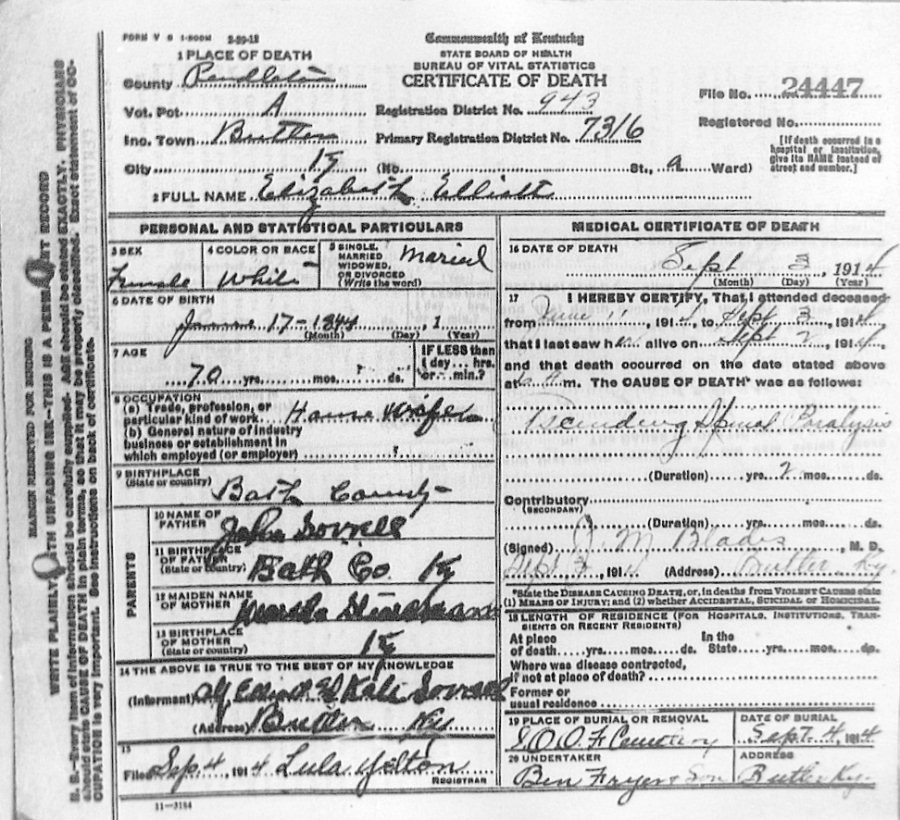 FORM V S 1-500M 2-20-12
Commonwealth of Kentucky
STATE BOARD OF HEALTH
BUREAU OF VITAL STATISTICS
CERTIFICATE OF DEATH
1 PLACE OF DEATH
County Pendleton
Vot. Pct A
Inc. Town Butler
City Ky (No. St., Ward)
Registration District No. 943
Primary Registration District No. 7316
File No. 24447
Registered No.
[If death occurred in a
hospital or institution,
give its NAME instead of
street and number.]
2 FULL NAME Elizabeth Elliott
PERSONAL AND STATISTICAL PARTICULARS
3 SEX
Female
4 COLOR OR RACE
White
5 SINGLE,
MARRIED
WIDOWED,
OR DIVORCED
(Write the word)
Maried
6 DATE OF BIRTH
17-1844
(Month) (Day) (Year)
7 AGE
70 yrs. mos. ds.
IF LESS than
1 day hrs.
or min.?
8 OCCUPATION
(a) Trade, profession, or
particular kind of work
(b) General nature of industry
business or establishment in
which employed (or employer)
9 BIRTHPLACE
(State or country)
Bath County
PARENTS
10 NAME OF
FATHER
John Sorrell
11 BIRTHPLACE
OF FATHER
(State or country)
Bath Co Ky
12 MAIDEN NAME
OF MOTHER
13 BIRTHPLACE
OF MOTHER
(State or country)
Ky
14 THE ABOVE IS TRUE TO THE BEST OF MY KNOWLEDGE
(Informant)
(Address) Butler Ky
15
Filed Sep 4, 1914 Lula Yelton
REGISTRAR
11-3184
MEDICAL CERTIFICATE OF DEATH
16 DATE OF DEATH
Sept 3, 1914
(Month) (Day) (Year)
17 I HEREBY CERTIFY, That I attended deceased
from June 11, 1914, to Sept 3, 1914
that I last saw her alive on Sept 2, 1914,
and that death occurred on the date stated above
at m. The CAUSE OF DEATH* was as follows:
Ascending Spinal Paralysis
(Duration) yrs. 2 mos. ds.
Contributory
(SECONDARY)
(Duration) yrs. mos. ds.
(Signed) J. M Blades, M. D.
Sept 3, 1914 (Address) Butler Ky.
*State the DISEASE CAUSING DEATH, or, in deaths from VIOLENT CAUSES state
(1) MEANS OF INJURY; and (2) whether ACCIDENTAL, SUICIDAL OR HOMICIDAL.
18 LENGTH OF RESIDENCE (FOR HOSPITALS, INSTITUTIONS, TRAN-
SIENTS OR RECENT RESIDENTS)
At place In the
of death yrs. mos. ds. State yrs. mos. ds.
Where was disease contracted,
if not at place of death?
Former or
usual residence
19 PLACE OF BURIAL OR REMOVAL
I.O.O.F Cemetery
DATE OF BURIAL
Sept. 4, 1914
20 UNDERTAKER
Ben Fryer & Son
ADDRESS
Butler Ky.
MARGIN RESERVED FOR BINDING
WRITE PLAINLY WITH UNFADING INK—THIS IS A PERMANENT RECORD
N. B.—Every item of information should be carefully supplied. AGE should be stated EXACTLY. PHYSICIANS
should state CAUSE OF DEATH in plain terms, so that it may be properly classified. Exact statement of OC-
CUPATION is very important. See instructions on back of certificate.